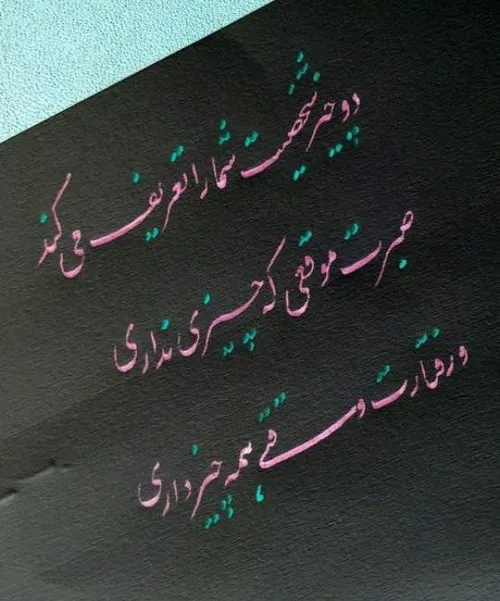 دو چیز شخصیت شما را تعریف می کند
صبرت موقعی که چیزی نداری
و رفتارت وقتی همه چیز داری